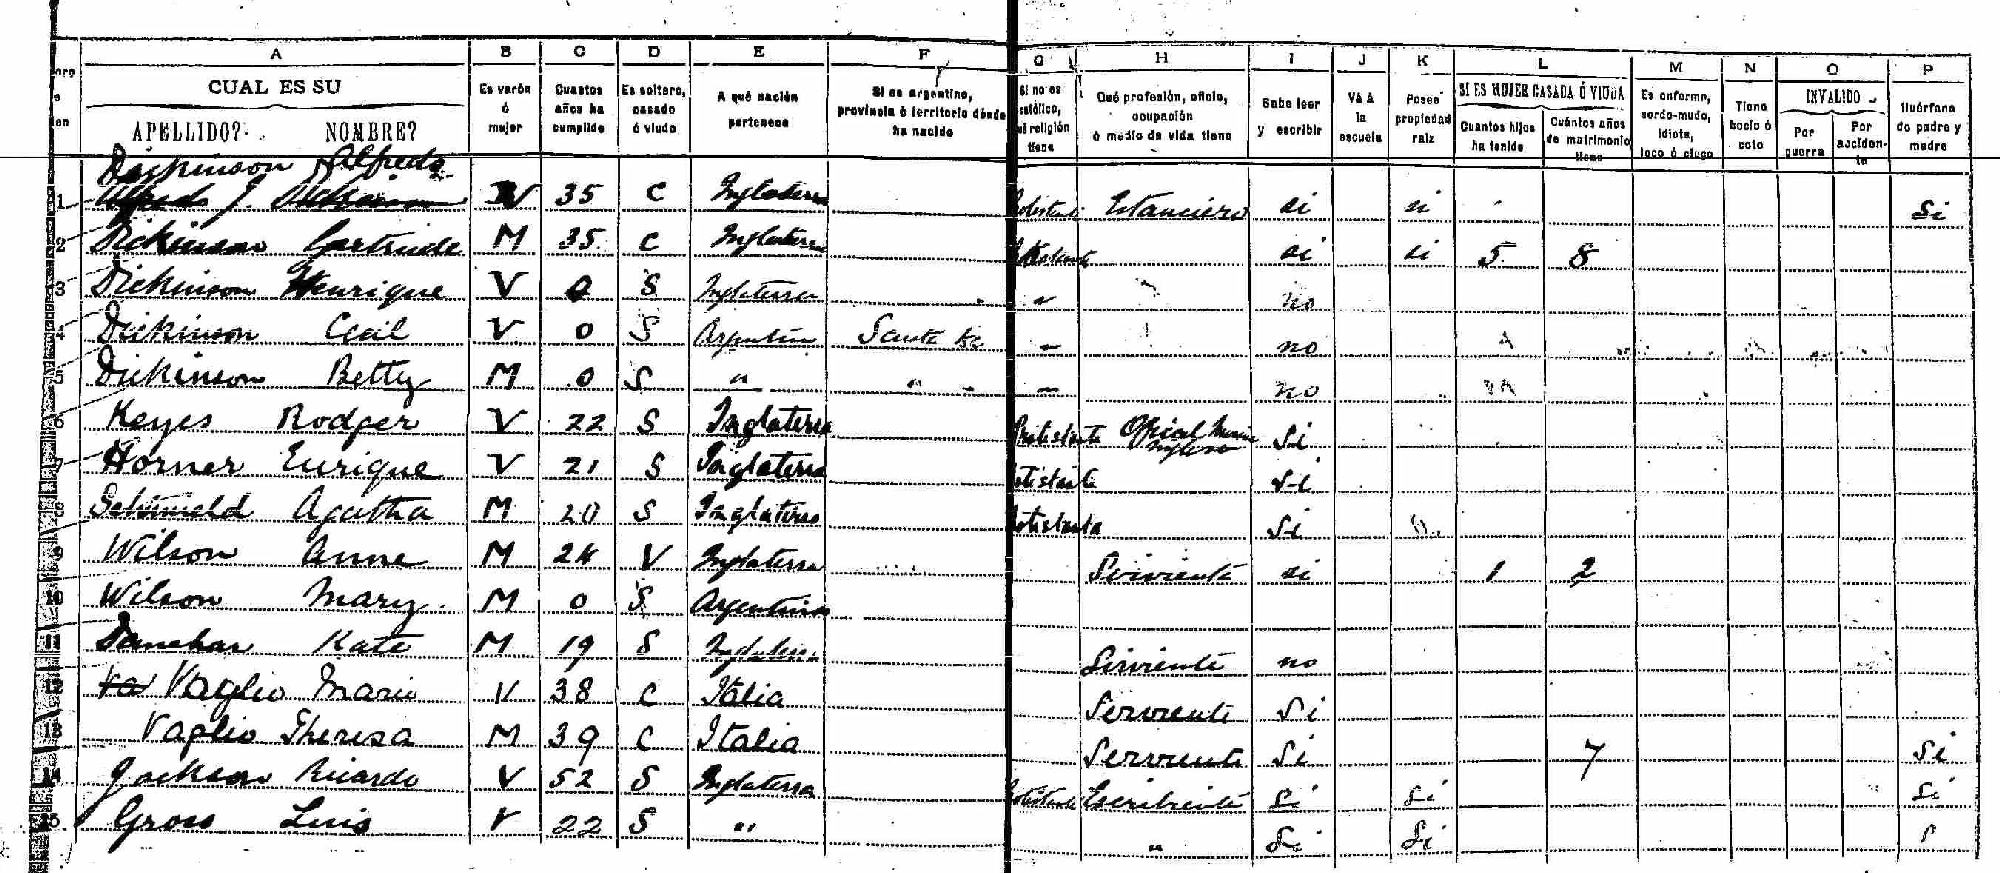 A B C D E F G H I J K L M N O P
CUAL ES SU
APELLIDO? NOMBRE?
Es varón ó mujer
Cuantos años ha cumplido
Es soltero, casado ó viudo
A qué nación pertenece
Si es argentino, provincia ó territorio dónde ha nacido
Si no es católico, qué religión tiene
Qué profesión, oficio, ocupación ó medio de vida tiene
Sabe leer y escribir
Vá á la escuela
Posee propiedad raiz
SI ES MUJER CASADA Ó VIUDA
Cuantos hijos ha tenido
Cuántos años de matrimonio tiene
Es enfermo, sordo-mudo, idiota, loco ó ciego
Tiene bocio ó coto
INVALIDO
Por guerra
Por acciden-te
Huérfano de padre y madre
Dickinson Alfredo
1 V 35 C Inglaterra Estanciero si si Si
2 Dickinson Gertrude M 35 C Inglaterra si si 5 8
3 Dickinson Henrique V 0 S Inglaterra " no
4 Dickinson Cecil V 0 S Argentin Santa Fe " no
5 Dickinson Betty M 0 S " " " no
6 Keyes Rodger V 22 S Inglaterra Protestante Oficial Marin Inglesa Si
7 Horner Enrique V 21 S Inglaterra si
8 Agatha M 20 S Inglaterra Si
9 Wilson Anne M 24 V Inglaterra Sirvienta si 1 2
10 Wilson Mary M 0 S Argentina
11 Kate M 19 S Inglaterra Sirvienta no
12 Va Vaglio Mario V 38 C Italia Serviente Si
13 Vaglio Theresa M 39 C Italia Serviente Si 7 Si
14 Jackson Ricardo V 52 S Inglaterra Escribiente Si Si Si
15 Gross Luis V 22 S " " Si Si